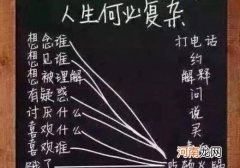 人生何必复杂
想念谁 打电话
想见谁 约
想被理解 解释
有疑惑 问
讨厌什么 说
喜欢什么 买
喜欢谁
饿了